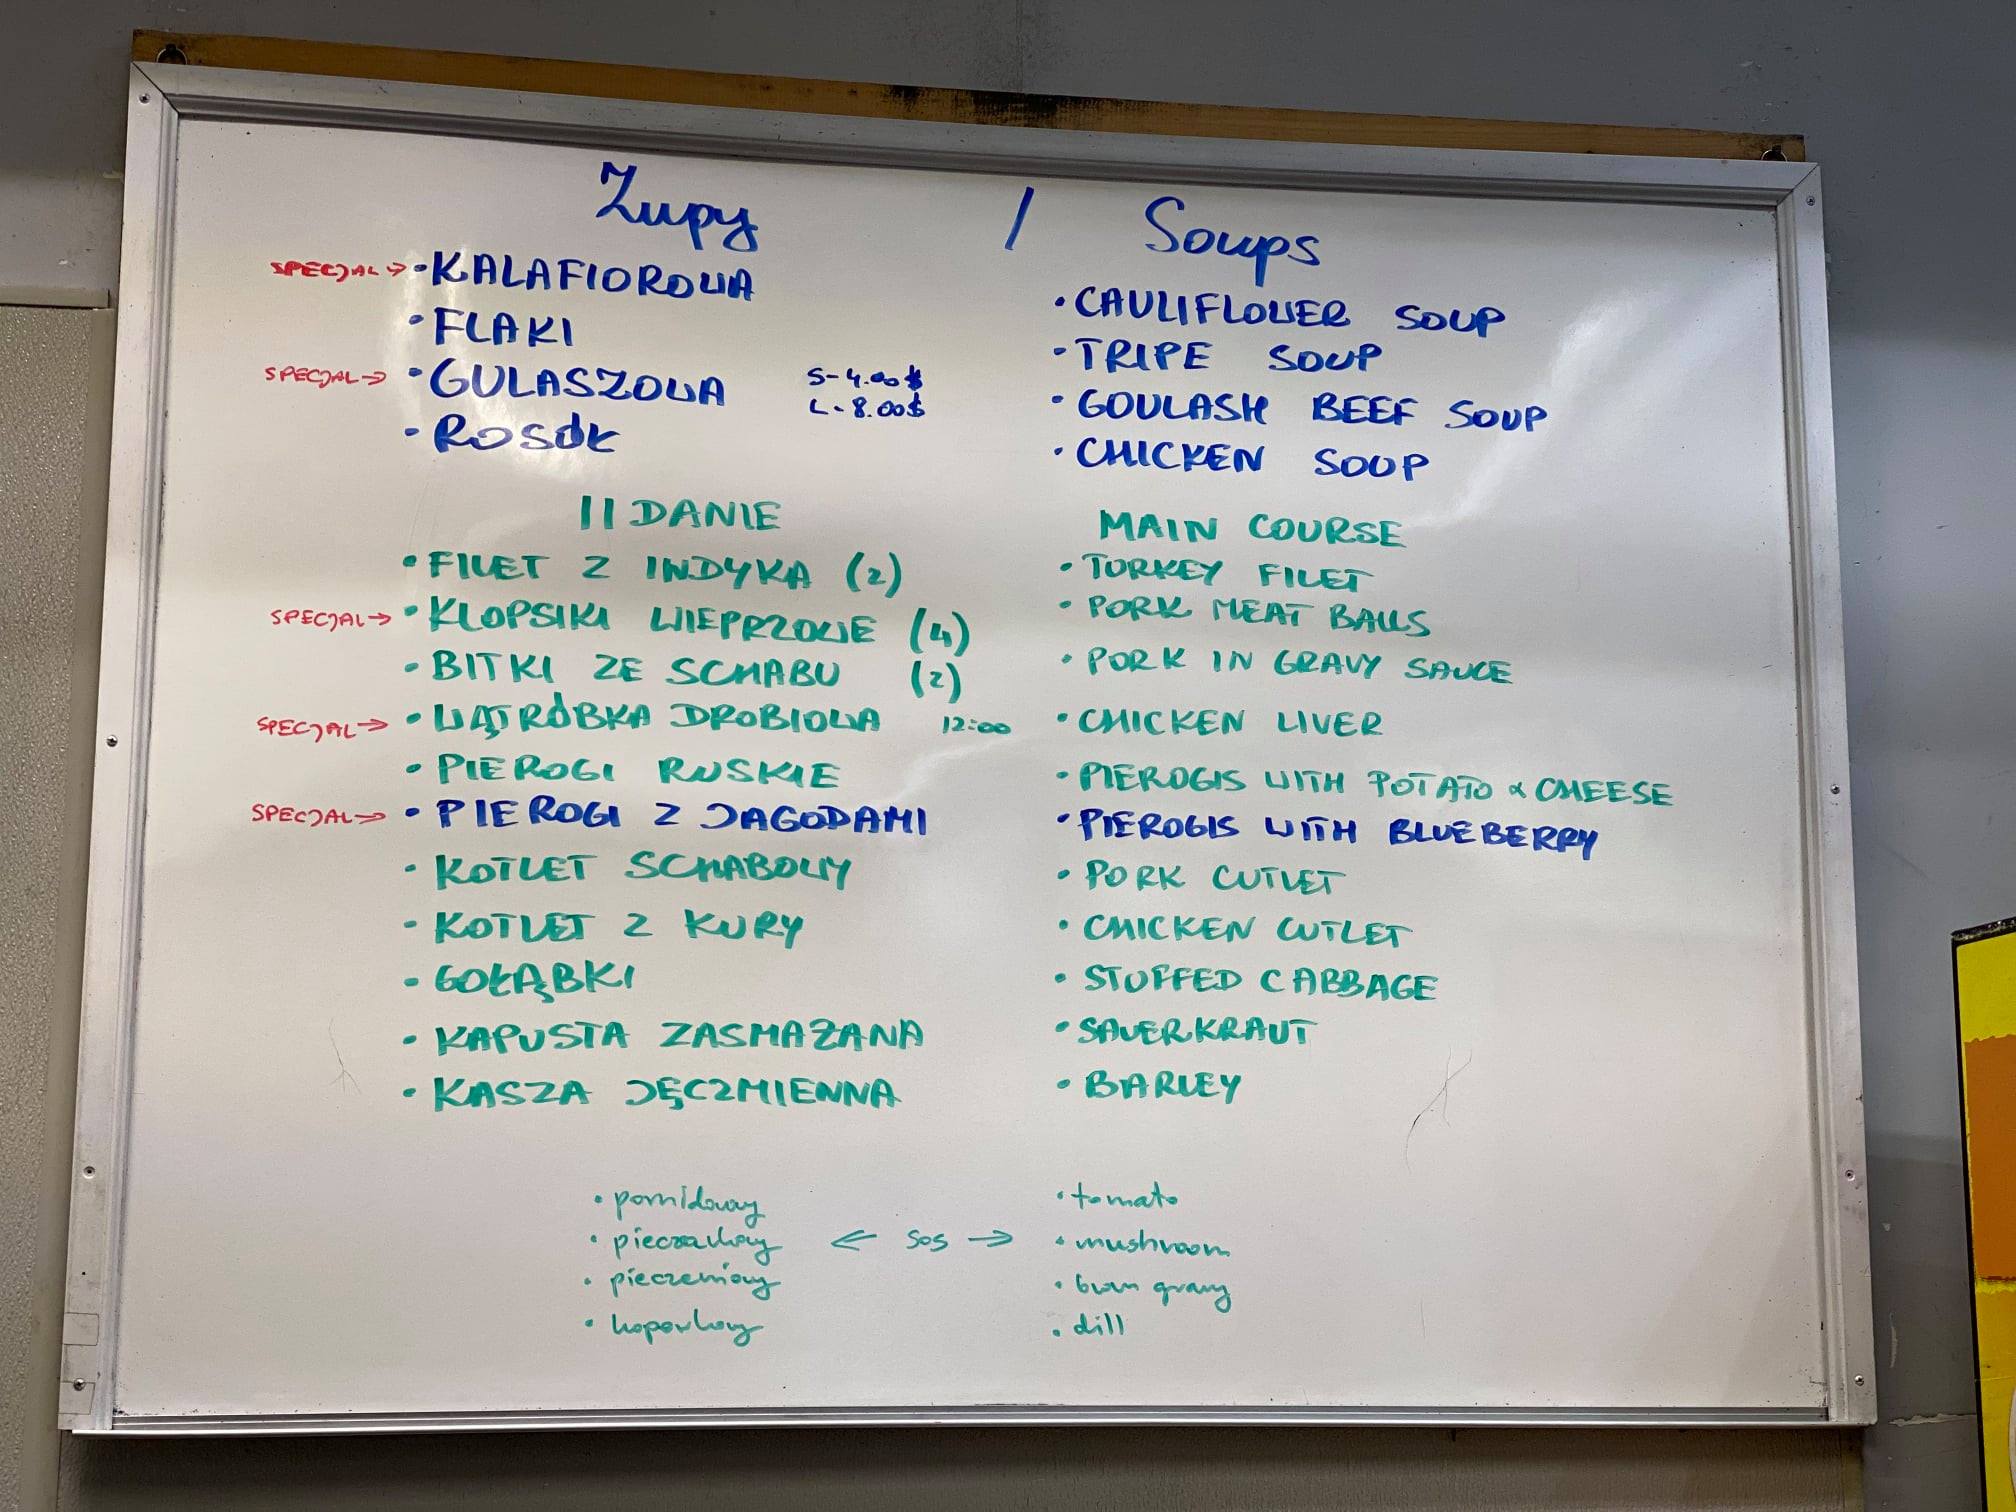 Zupy / Soups
SPECJAL → • KALAFIOROWA
• CAULIFLOWER SOUP
• FLAKI
• TRIPE SOUP
SPECJAL → • GULASZOWA S-4.00$
L-8.00$
• GOULASH BEEF SOUP
• ROSÓŁ
• CHICKEN SOUP
II DANIE
MAIN COURSE
• FILET Z INDYKA (2)
• TURKEY FILET
SPECJAL → • KLOPSIKI WIEPRZOWE (4)
• PORK MEAT BALLS
• BITKI ZE SCHABU (2)
• PORK IN GRAVY SAUCE
SPECJAL → • WĄTRÓBKA DROBIOWA 12:00
• CHICKEN LIVER
• PIEROGI RUSKIE
• PIEROGIS WITH POTATO & CHEESE
SPECJAL → • PIEROGI Z JAGODAMI
• PIEROGIS WITH BLUEBERRY
• KOTLET SCHABOWY
• PORK CUTLET
• KOTLET Z KURY
• CHICKEN CUTLET
• GOŁĄBKI
• STUFFED CABBAGE
• KAPUSTA ZASMAŻANA
• SAUERKRAUT
• KASZA JĘCZMIENNA
• BARLEY
• pomidowy
• tomato
• pieczarkowy ← sos → • mushroom
• pieczeniowy
• brown gravy
• koperkowy
• dill